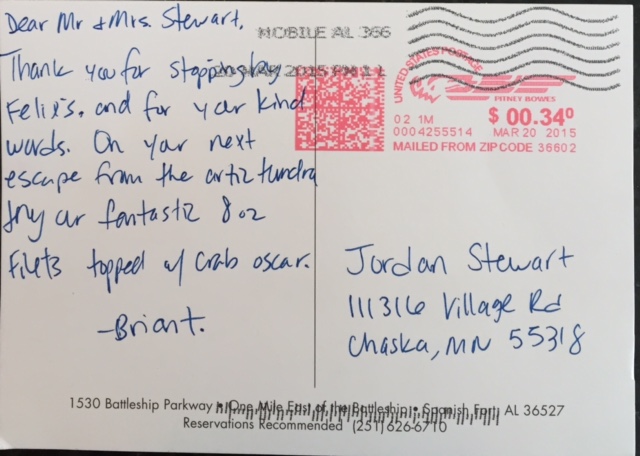 Dear Mr + Mrs. Stewart,
Thank you for stopping by
Felix's, and for your kind
words. On your next
escape from the artic tundra
try our fantastic 8 oz
Filets topped w/ crab oscar.
-Brian T.
MOBILE AL 366
20 MAR 2015 PM 1 L
UNITED STATES POSTAGE
PITNEY BOWES
02 1M
$ 00.34⁰
0004255514
MAR 20 2015
MAILED FROM ZIP CODE 36602
Jordan Stewart
111316 Village Rd
Chaska, MN 55318
1530 Battleship Parkway • One Mile East of the Battleship • Spanish Fort, AL 36527
Reservations Recommended (251) 626-6710